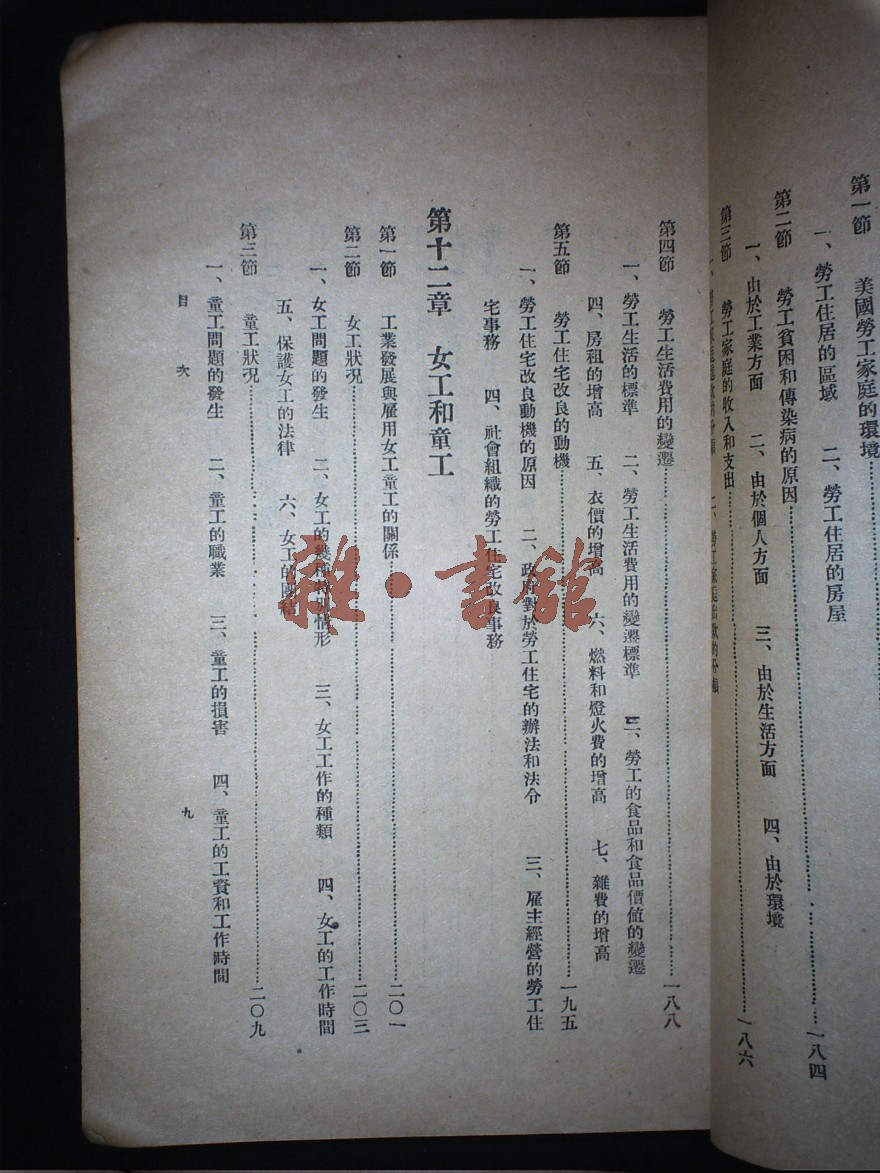 第一節　美國勞工家庭的環境
一、勞工住居的區域　二、勞工住居的房屋
第二節　勞工貧困和傳染病的原因……一八四
一、由於工業方面　二、由於個人方面　三、由於生活方面　四、由於環境
第三節　勞工家庭的收入和支出……一八六
第四節　勞工生活費用的變遷……一八八
一、勞工生活的標準　二、勞工生活費用的變遷標準　三、勞工的食品和食品價值的變遷
四、房租的增高　五、衣價的增高　六、燃料和燈火費的增高　七、雜費的增高
第五節　勞工住宅改良的動機……一九五
一、勞工住宅改良動機的原因　二、政府對於勞工住宅的辦法和法令　三、雇主經營的勞工住
宅事務　四、社會組織的勞工住宅改良事務
第十二章　女工和童工
第一節　工業發展與雇用女工童工的關係……二〇一
第二節　女工狀況……二〇三
一、女工問題的發生　二、女工的幾種特別情形　三、女工工作的種類　四、女工的工作時間
五、保護女工的法律　六、女工的團結
第三節　童工狀況……二〇九
一、童工問題的發生　二、童工的職業　三、童工的損害　四、童工的工資和工作時間
目次　九
雜·書館